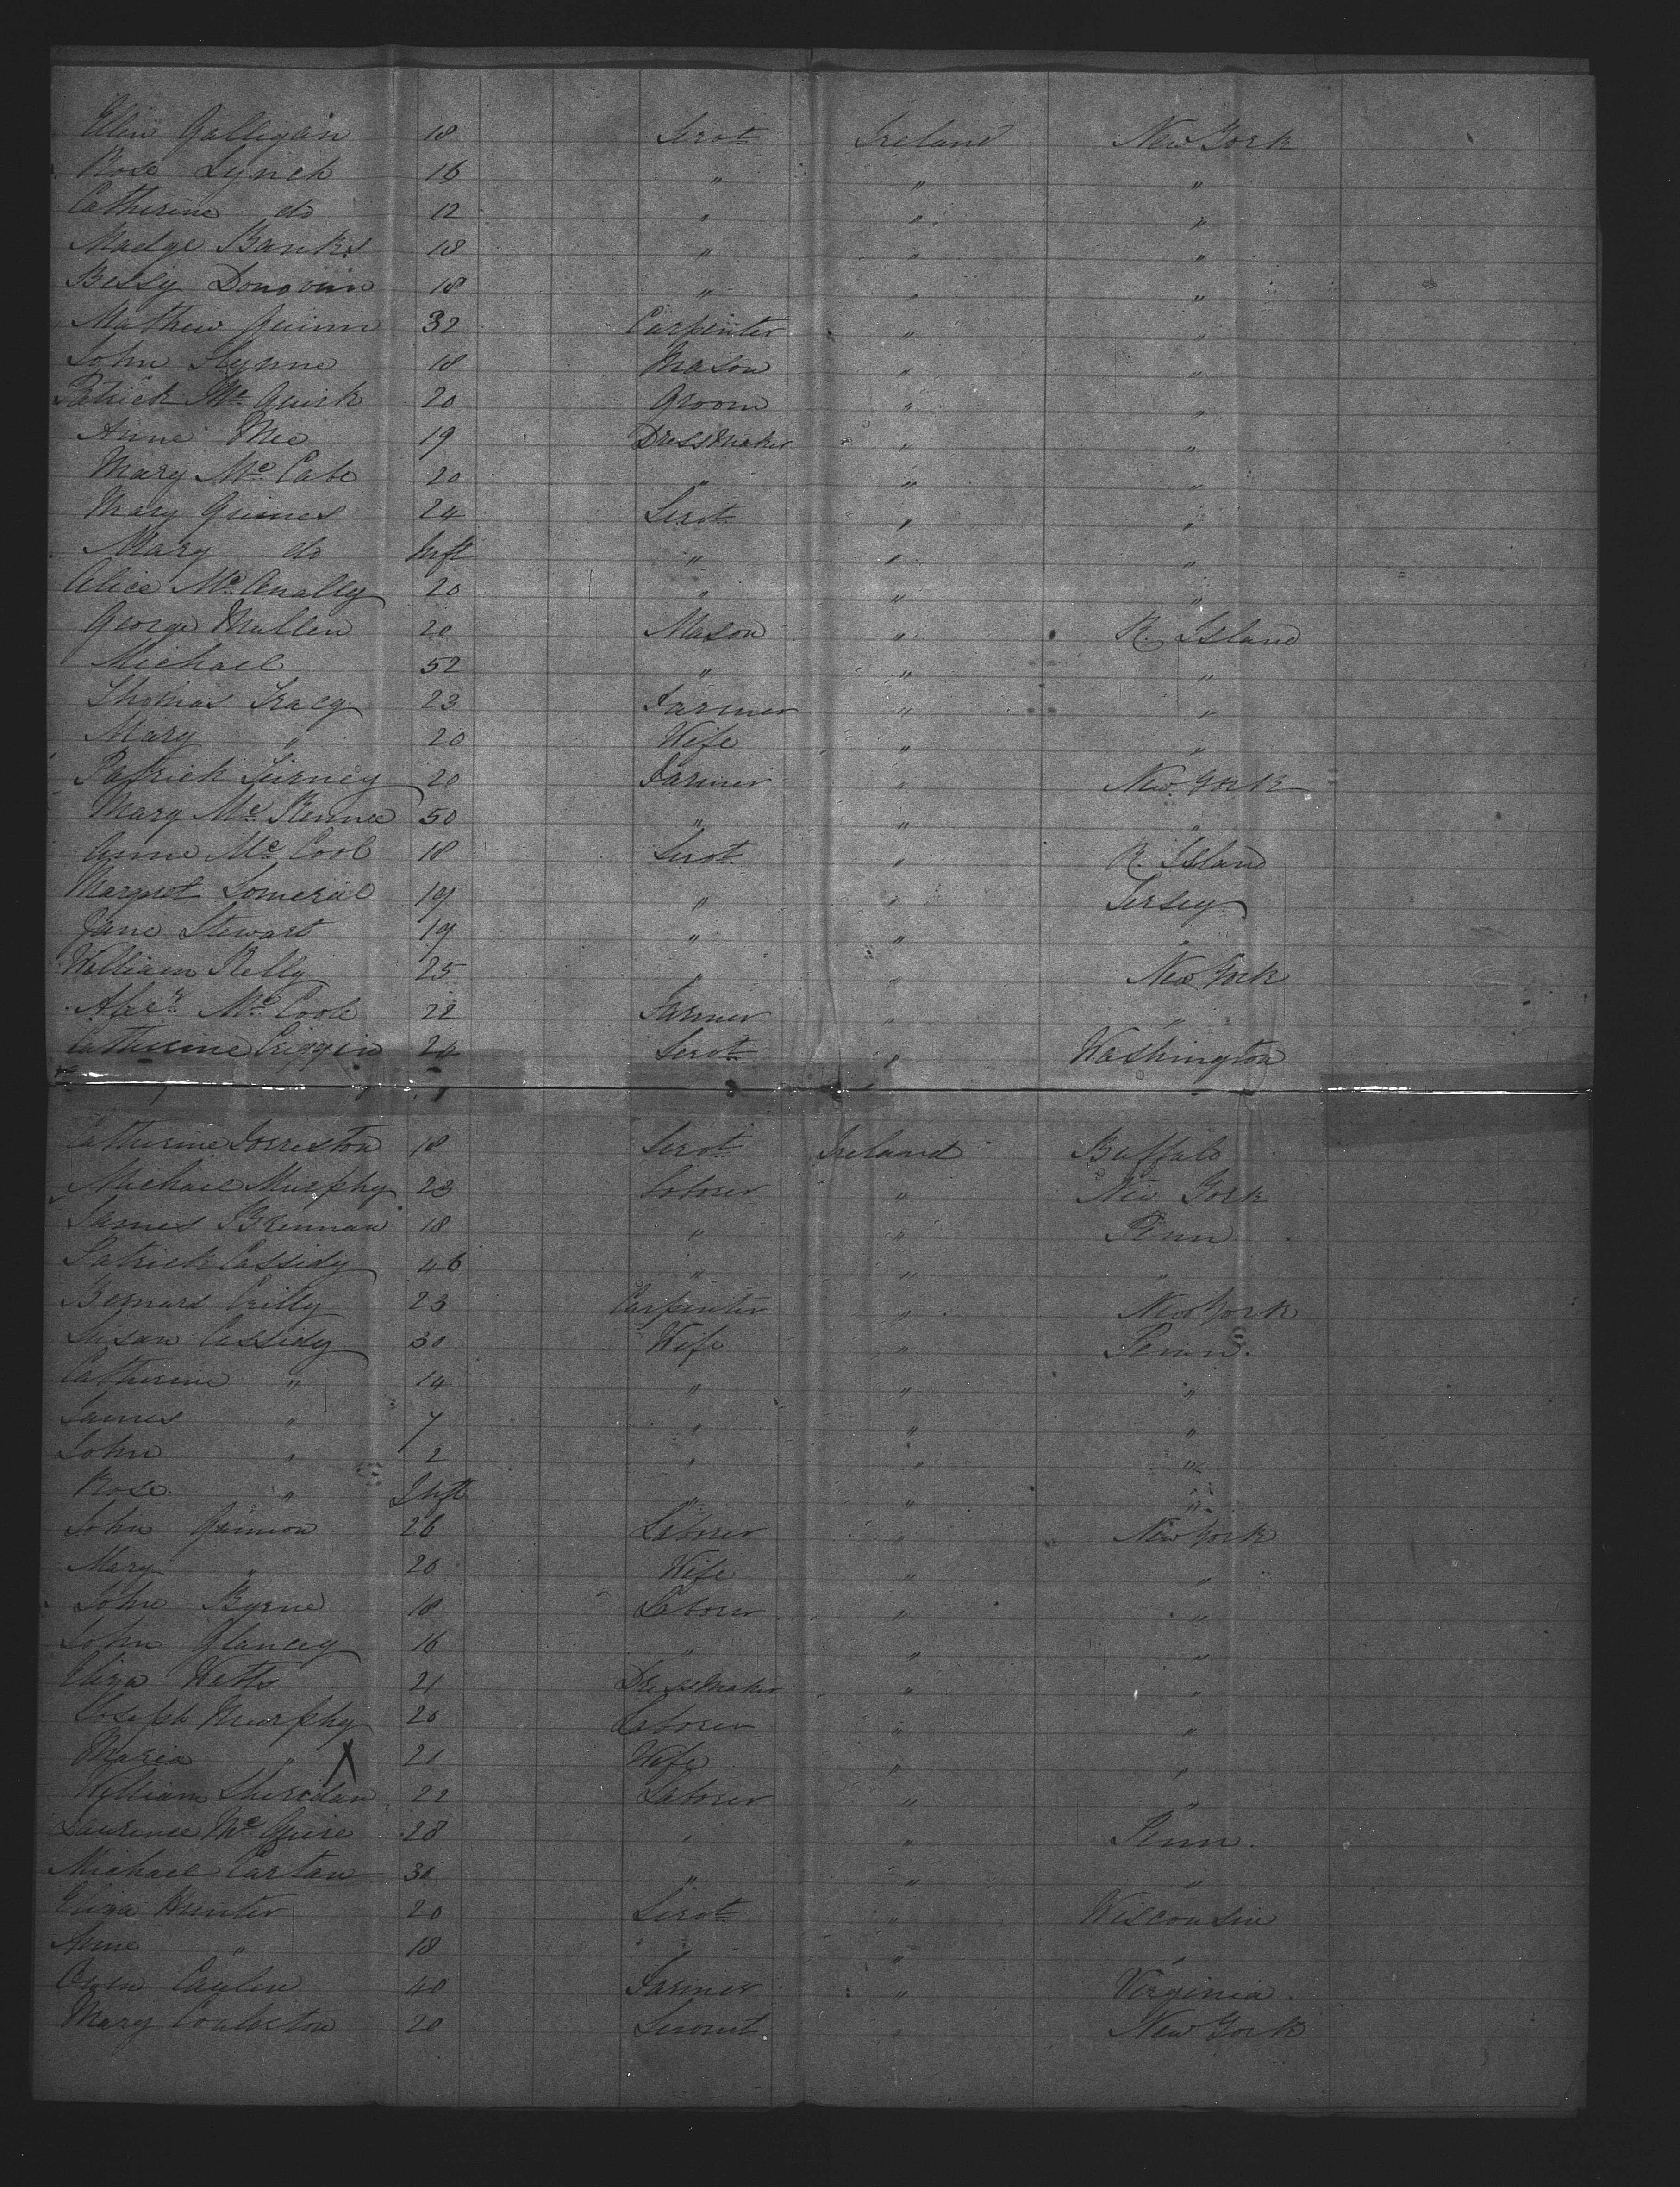 Ellen Galligan 18 Servt Ireland New York
Rose Lynch 16 " " "
Catherine do 12 " " "
Madge Banks 18 " " "
Bessy Donovan 18 " " "
Mathew Quinn 32 Carpenter " "
John Flynne 18 Mason " "
Patrick Mc Guirk 20 Groom " "
Anne Mee 19 DressMaker " "
Mary Mc Cabe 20 " " "
Mary Guines 24 Servt " "
Mary do Inft " " "
Alice Mc Anally 20 " " "
George Mullen 20 Mason " R. Island
Michael 52 " " "
Thomas Tracy 23 Farmer " "
Mary " 20 Wife " "
Patrick Tierney 20 Farmer " New York
Mary Mc Kenna 50 " " "
Anne Mc Cool 18 Servt " R. Island
Margret 19 " " Jersey
Jane Stewart 19 " " "
William Kelly 25 " " New York
Alexr Mc Cook 22 Farmer " "
Catherine 20 Servt " Washington
Catherine Forreston 18 Servt Ireland Buffalo
Michael Murphy 23 Laborer " New York
James Brennan 18 " " Penn
Patrick Cassidy 46 " " "
Bernard Crilly 23 Carpenter " New York
Susan Cassidy 30 Wife " Penn.
Catherine " 14 " " "
James " 7 " " "
John " 2 " " "
Rose " Inft " " "
John Gannon 26 Laborer " New York
Mary " 20 Wife " "
John Byrne 18 Laborer " "
John Glancey 16 " " "
Eliza Watts 21 DressMaker " "
Joseph Murphy 20 Laborer " "
Maria " X 21 Wife " "
William Sheridan 22 Laborer " "
Laurence Mc Guire 28 " " Penn.
Michael Cartan 30 " " "
Eliza Hunter 20 Servt " Wisconsin
Anne " 18 " " "
Owen 40 Farmer " Virginia
Mary 20 Servnt " New York